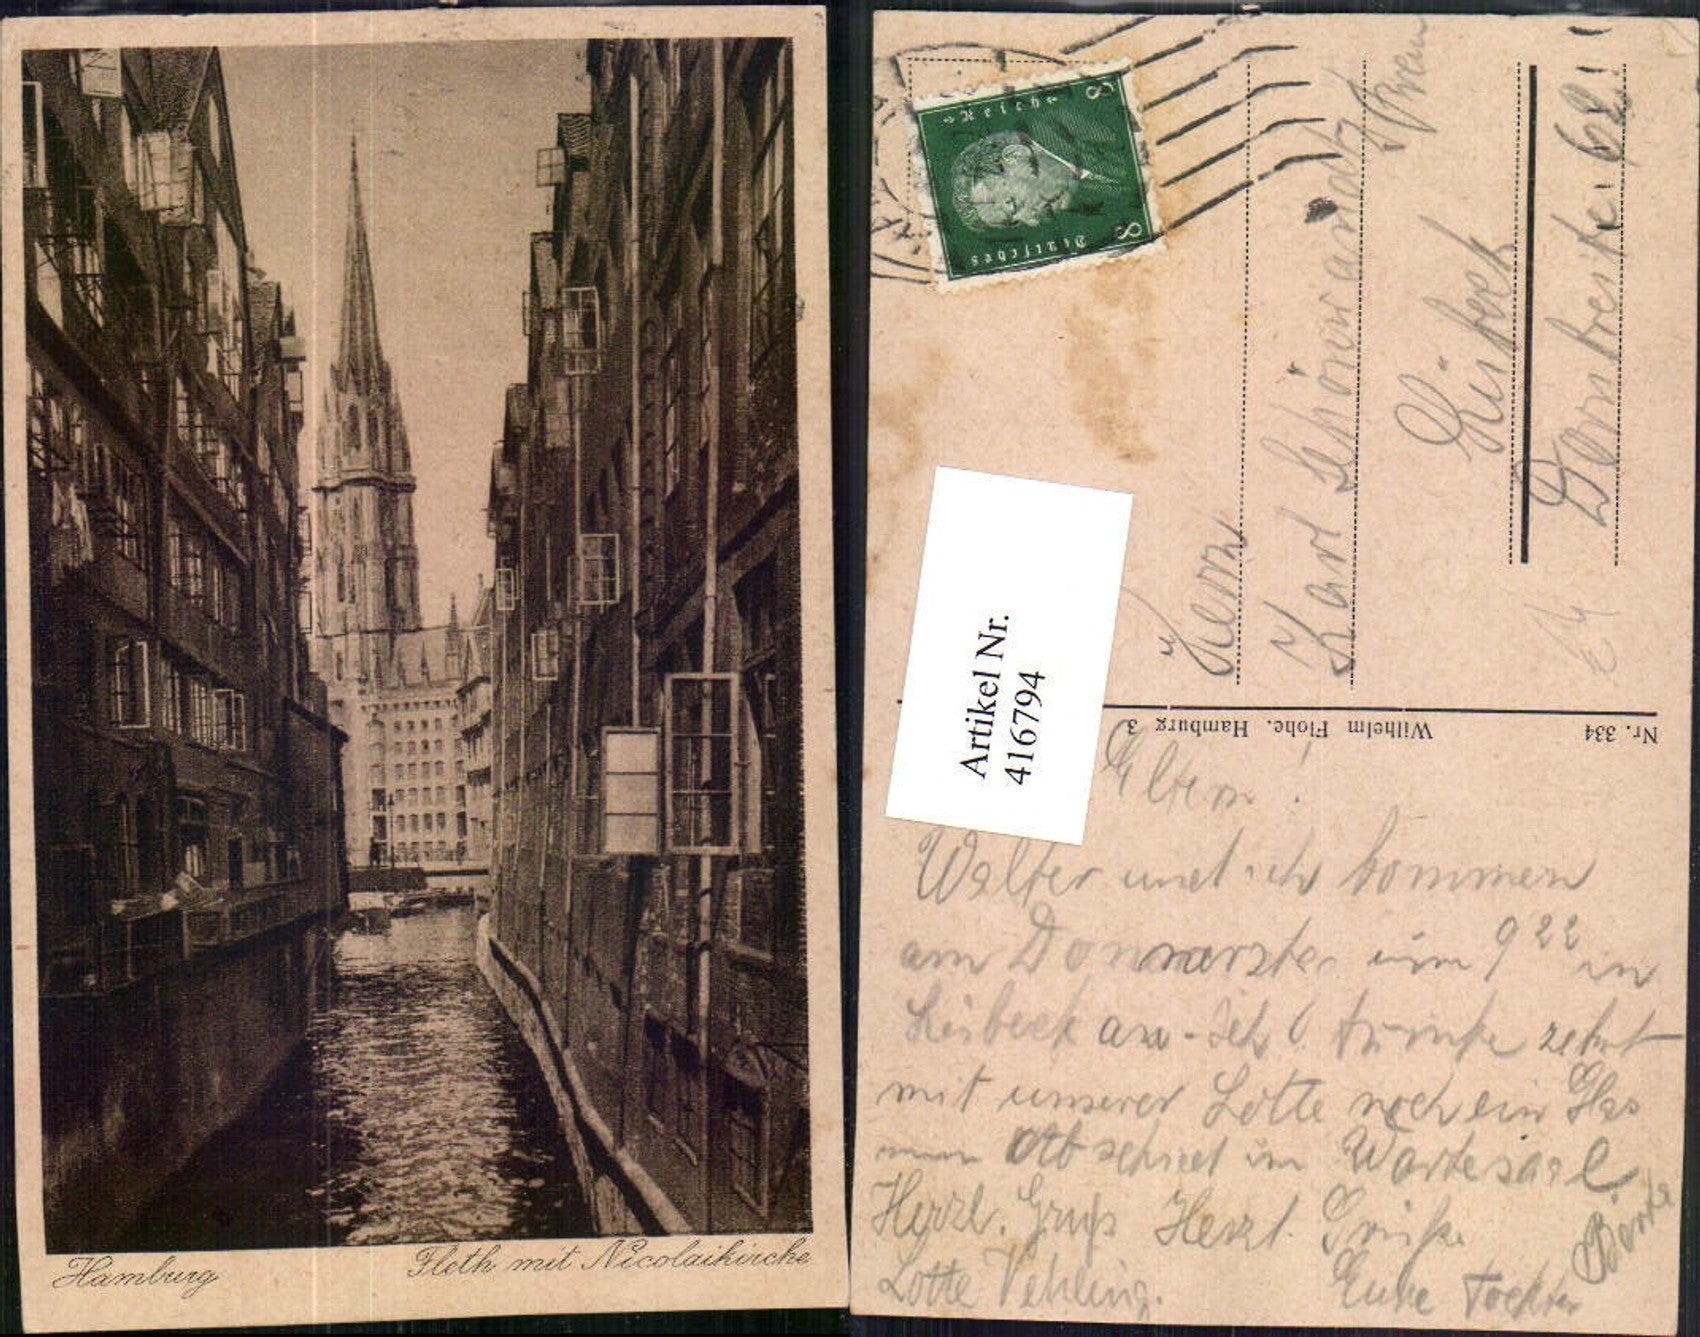 Hamburg
Fleth mit Nicolaikirche
Deutsches
Reich
8
8
Artikel Nr.
416794
Herrn
Karl
Lübeck
Dornbreite 62
Nr. 334
Wilhelm Flohe. Hamburg 3
Eltern!
Walter und ich kommen
am um 9 22 in
Lübeck an - Ich trinke
mit unserer Lotte noch ein Glas
zum Abschied im Wartesaal.
Herzl. Gruß Herzl. Grüße
Lotte Vehling. Eure Tochter